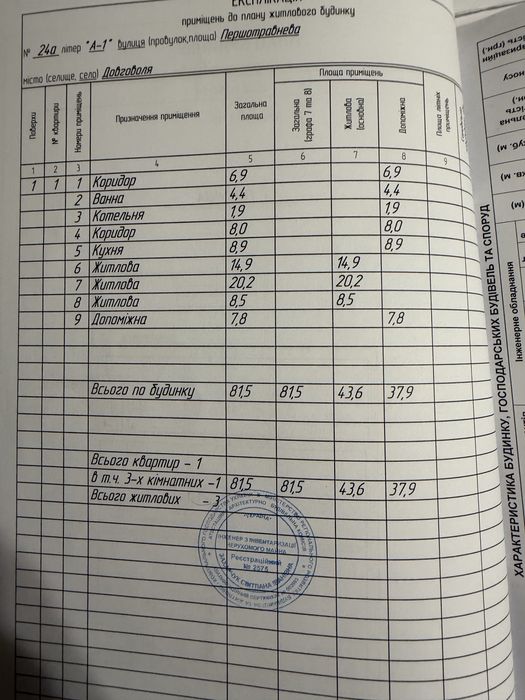 ЕКСПЛІКАЦІЯ
приміщень до плану житлового будинку
№ 24а літер "А-1" вулиця (провулок,площа) Першотравнева
місто (селище, село) Довговоля
Поверхи
№ квартири
Номери приміщень
Призначення приміщення
Загальна площа
Площа приміщень
Загальна (графа 7 та 8)
Житлова (основна)
Допоміжна
Площа літніх приміщень
1 2 3 4 5 6 7 8 9
1 1 1 Коридор 6,9 6,9
2 Ванна 4,4 4,4
3 Котельня 1,9 1,9
4 Коридор 8,0 8,0
5 Кухня 8,9 8,9
6 Житлова 14,9 14,9
7 Житлова 20,2 20,2
8 Житлова 8,5 8,5
9 Допоміжна 7,8 7,8
Всього по будинку 81,5 81,5 43,6 37,9
Всього квартир - 1
в т.ч. 3-х кімнатних -1 81,5 81,5 43,6 37,9
Всього житлових - 3
УКРАЇНА
ІНЖЕНЕР З ІНВЕНТАРИЗАЦІЇ
НЕРУХОМОГО МАЙНА
Реєстраційний
СВІТЛАНА ІВАНІВНА
ХАРАКТЕРИСТИКА БУДИНКУ, ГОСПОДАРСЬКИХ БУДІВЕЛЬ ТА СПОРУД
Інженерне обладнання